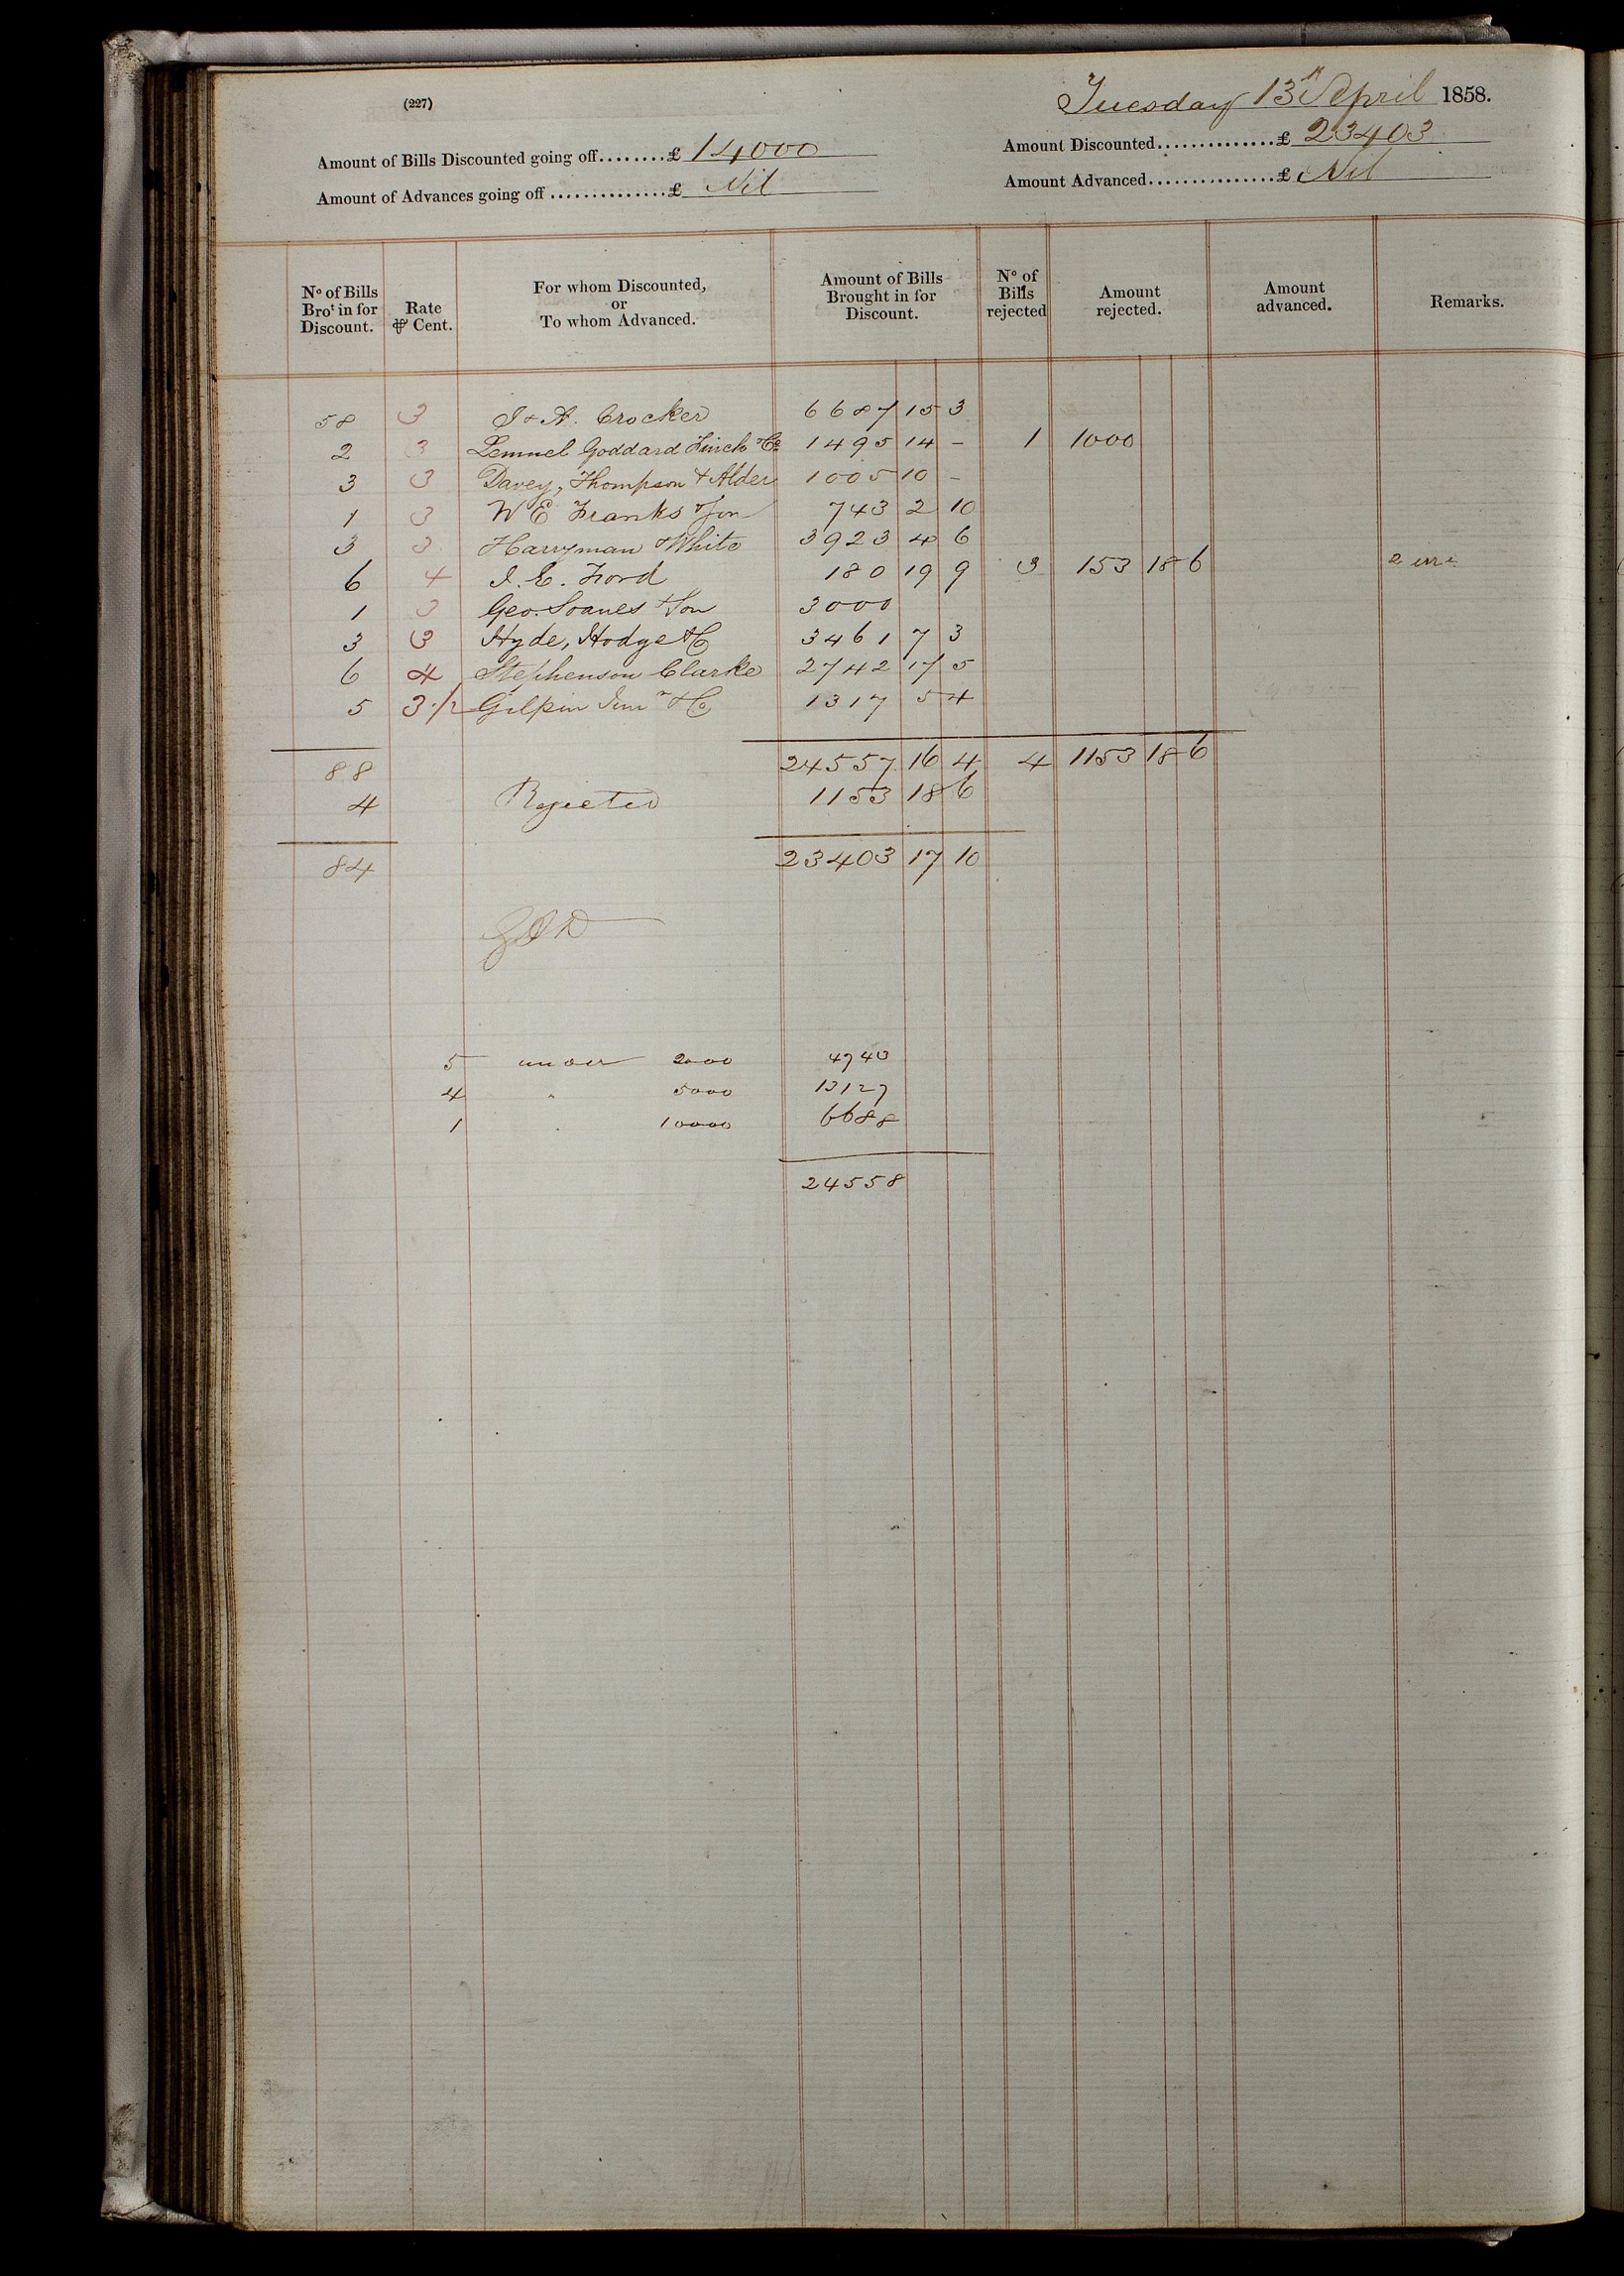 (227)
Tuesday 13th April 1858.
Amount of Bills Discounted going off........£ 14000
Amount Discounted...............£ 23403
Amount of Advances going off ...............£ Nil
Amount Advanced................£ Nil
No of Bills Brot in for Discount. | Rate ⅌ Cent. | For whom Discounted, or To whom Advanced. | Amount of Bills Brought in for Discount. | No of Bills rejected | Amount rejected. | Amount advanced. | Remarks.
58 3 J & A. Crocker 6687 15 3
2 3 Lemuel Goddard Finch & Co 1495 14 - 1 1000
3 3 Davey, Thompson & Alder 1005 10 -
1 3 W E Franks & Son 743 2 10
3 3 Harryman & White 3923 4 6
6 4 J. E. Ford 180 19 9 3 153 18 6 2
1 3 Geo. Soanes & Son 3000
3 3 Hyde, Hodge & Co 3461 7 3
6 4 Stephenson Clarke 2742 17 5
5 3 1/2 Gilpin Junr & Co 1317 5 4
88 24557 16 4 4 1153 18 6
4 Rejected 1153 18 6
84 23403 17 10
5 under 2000 4743
4 " 5000 13127
1 " 10000 6688
24558